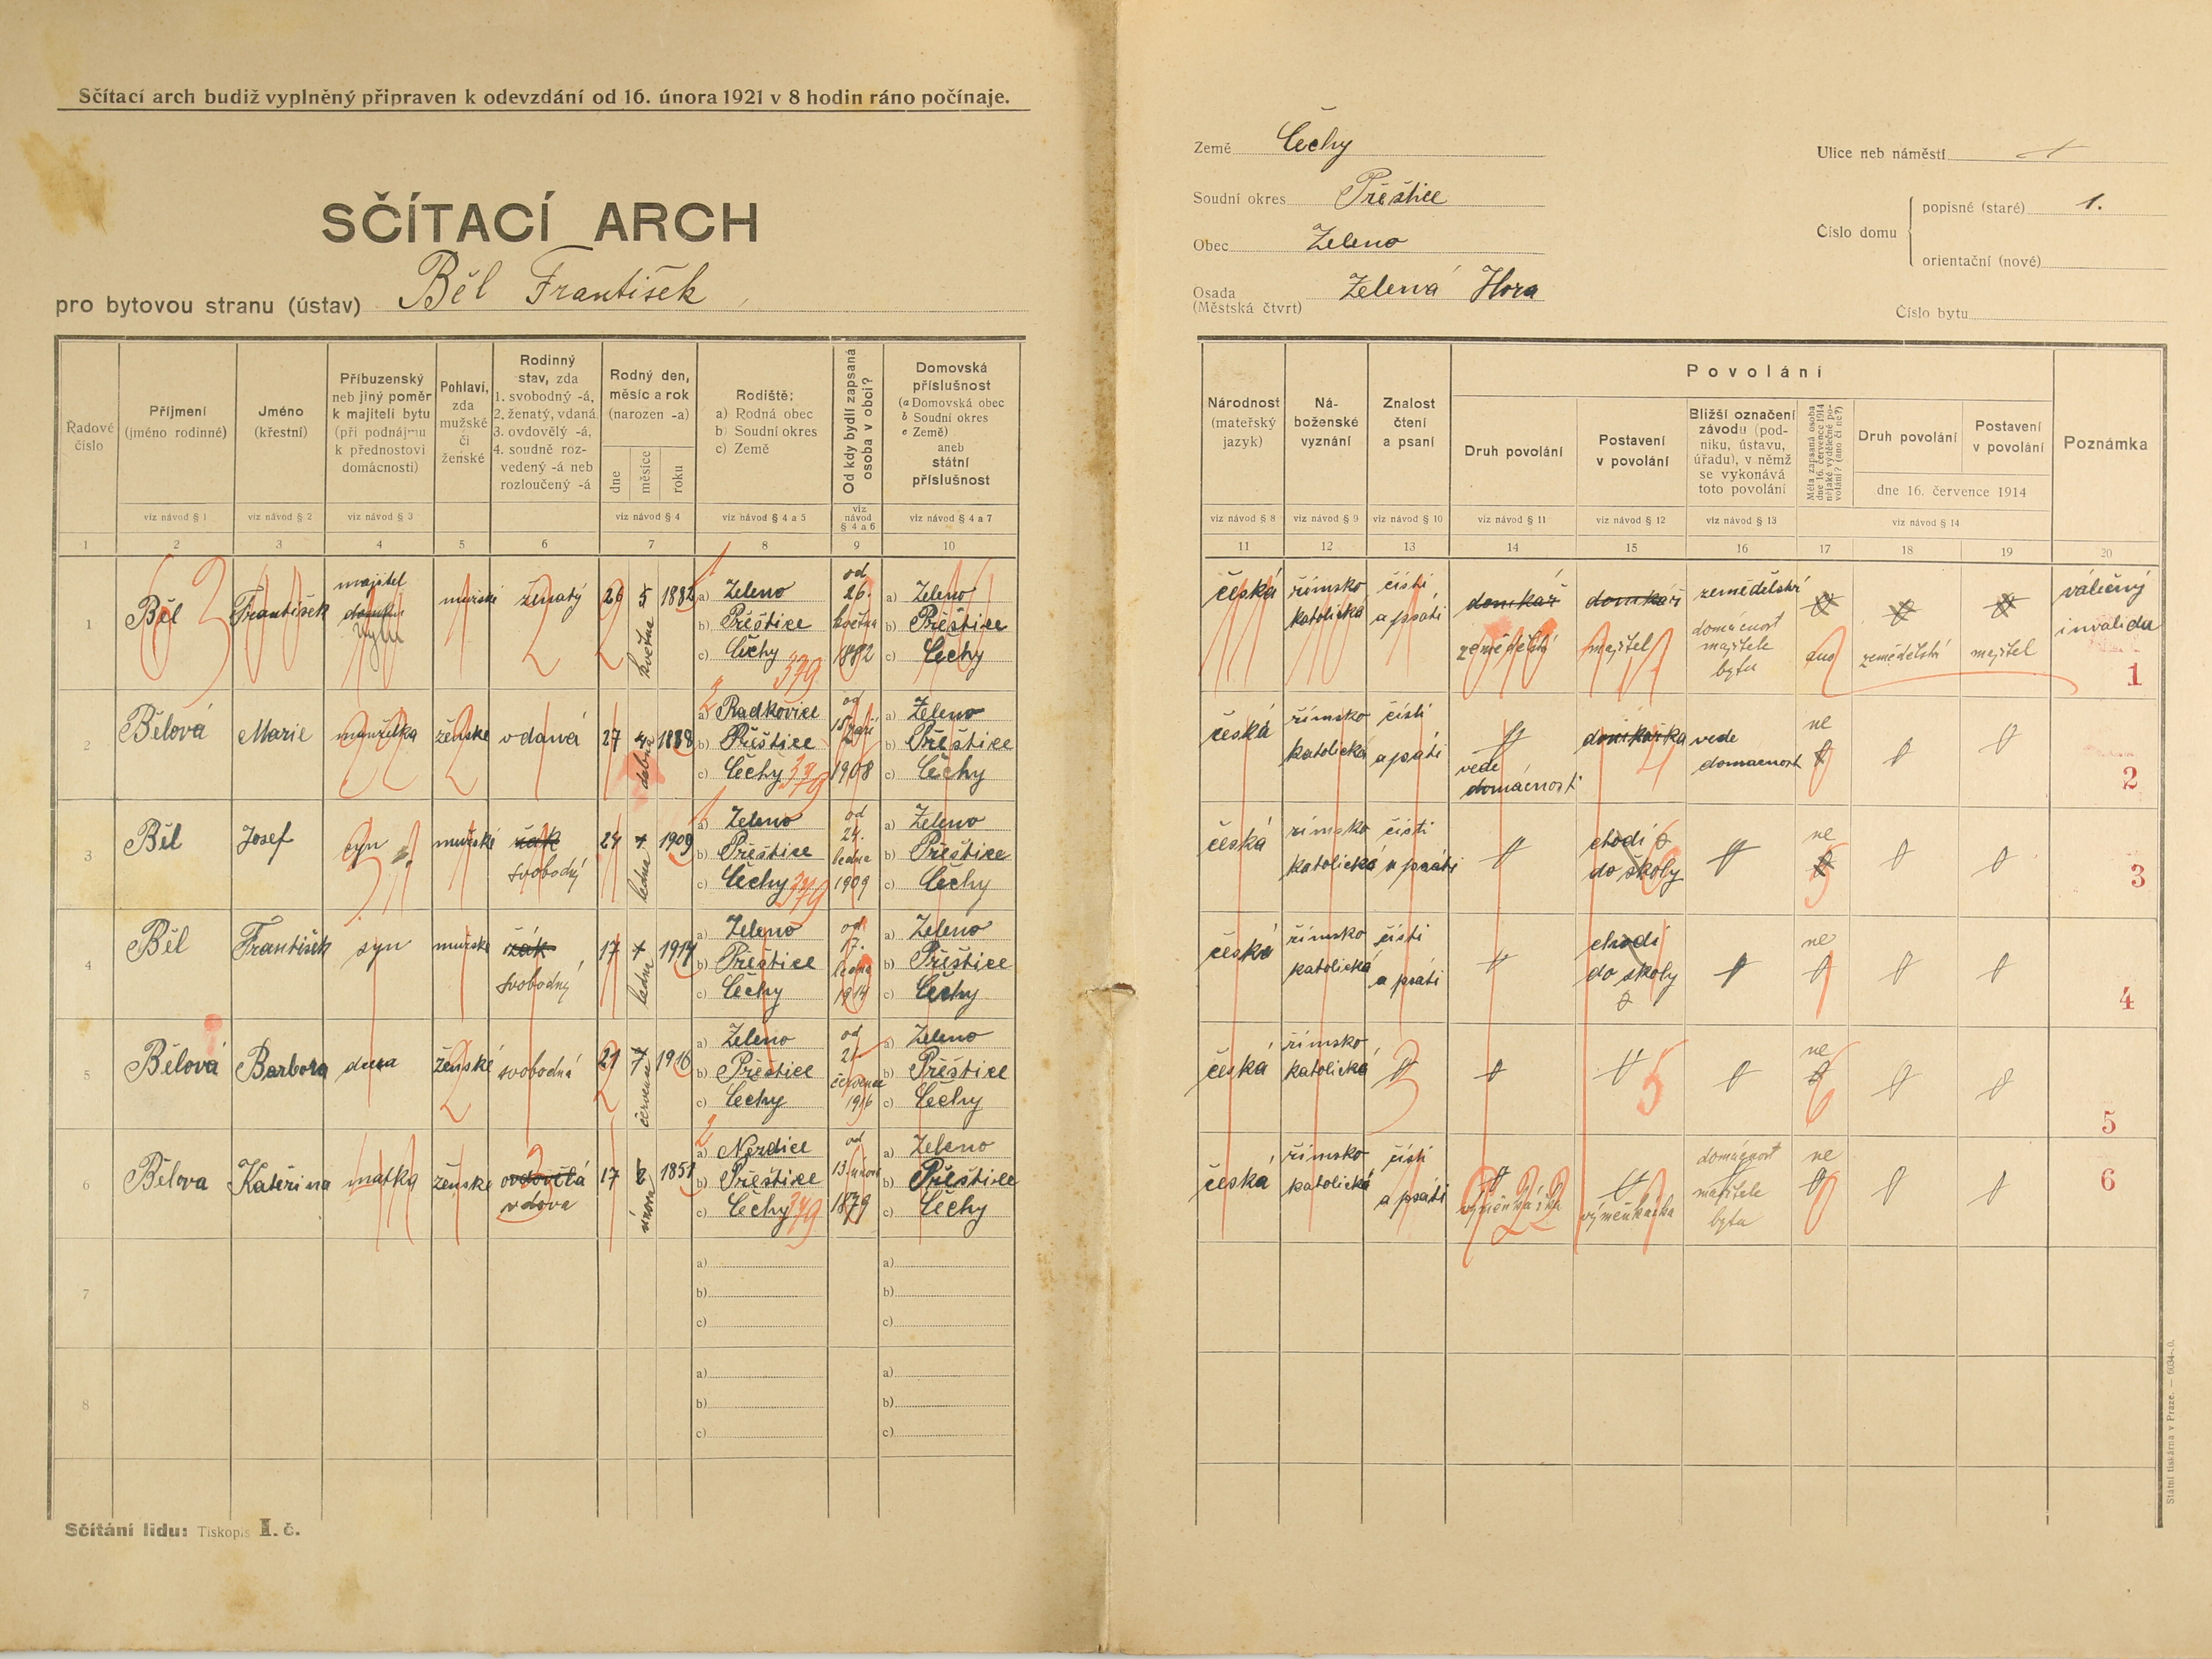 Sčítací arch budiž vyplněný připraven k odevzdání od 16. února 1921 v 8 hodin ráno počínaje.
SČÍTACÍ ARCH
pro bytovou stranu (ústav) Běl František
Země Čechy
Soudní okres Přeštice
Obec Zeleno
Osada (Městská čtvrt) Zelená Hora
Ulice neb náměstí
Číslo domu
popisné (staré) 1.
orientační (nové)
Číslo bytu
Řadové číslo
Příjmení (jméno rodinné)
viz návod § 1
Jméno (křestní)
viz návod § 2
Příbuzenský neb jiný poměr k majiteli bytu (při podnájmu k přednostovi domácnosti)
viz návod § 3
Pohlaví, zda mužské či ženské
Rodinný stav, zda 1. svobodný -á, 2. ženatý, vdaná, 3. ovdovělý -á, 4. soudně rozvedený -á neb rozloučený -á
Rodný den, měsíc a rok (narozen -a)
dne měsíce roku
viz návod § 4
Rodiště: a) Rodná obec b) Soudní okres c) Země
viz návod § 4 a 5
Od kdy bydlí zapsaná osoba v obci?
viz návod § 4 a 6
Domovská příslušnost (a Domovská obec b Soudní okres c Země) aneb státní příslušnost
viz návod § 4 a 7
Národnost (mateřský jazyk)
viz návod § 8
Náboženské vyznání
viz návod § 9
Znalost čtení a psaní
viz návod § 10
Povolání
Druh povolání
viz návod § 11
Postavení v povolání
viz návod § 12
Bližší označení závodu (podniku, ústavu, úřadu), v němž se vykonává toto povolání
viz návod § 13
Měla zapsaná osoba dne 16. července 1914 nějaké výdělečné povolání? (ano či ne?)
Druh povolání
Postavení v povolání
dne 16. července 1914
viz návod § 14
Poznámka
1 2 3 4 5 6 7 8 9 10
11 12 13 14 15 16 17 18 19 20
1 Běl František majitel bytu mužské ženatý 26 5 května 1882
a) Zeleno b) Přeštice c) Čechy 379
od 26. května 1882
a) Zeleno b) Přeštice c) Čechy
česká římsko katolická čísti a psáti domkař zemědělství domkař majitel zemědělství domácnost majitele bytu ano zemědělství majitel válečný invalida 1
2 Bělová Marie manželka ženské vdaná 27 4 dubna 1888
a) Radkovice b) Přeštice c) Čechy 379
od 18 září 1908
a) Zeleno b) Přeštice c) Čechy
česká římsko katolická čísti a psáti vede domácnost domkařka vede domácnost ne 2
3 Běl Josef syn mužské žák svobodný 24 ledna 1909
a) Zeleno b) Přeštice c) Čechy 379
od 24. ledna 1909
a) Zeleno b) Přeštice c) Čechy
česká římsko katolická čísti a psáti chodí do školy ne 3
4 Běl František syn mužské žák svobodný 17 ledna 1914
a) Zeleno b) Přeštice c) Čechy
od 17. ledna 1914
a) Zeleno b) Přeštice c) Čechy
česká římsko katolická čísti a psáti chodí do školy ne 4
5 Bělová Barbora dcera ženské svobodná 21 7 července 1916
a) Zeleno b) Přeštice c) Čechy
od 21 července 1916
a) Zeleno b) Přeštice c) Čechy
česká římsko katolická ne 5
6 Bělova Kateřina matka ženské ovdovělá vdova 17 2 února 1851
a) Nezdice b) Přeštice c) Čechy 379
od 13. února 1879
a) Zeleno b) Přeštice c) Čechy
česká římsko katolická čísti a psáti výměnkářka výměnkářka domácnost majitele bytu ne 6
7 a) b) c) a) b) c)
8 a) b) c) a) b) c)
Sčítání lidu: Tiskopis I. č.
Státní tiskárna v Praze. — 6034-.0.